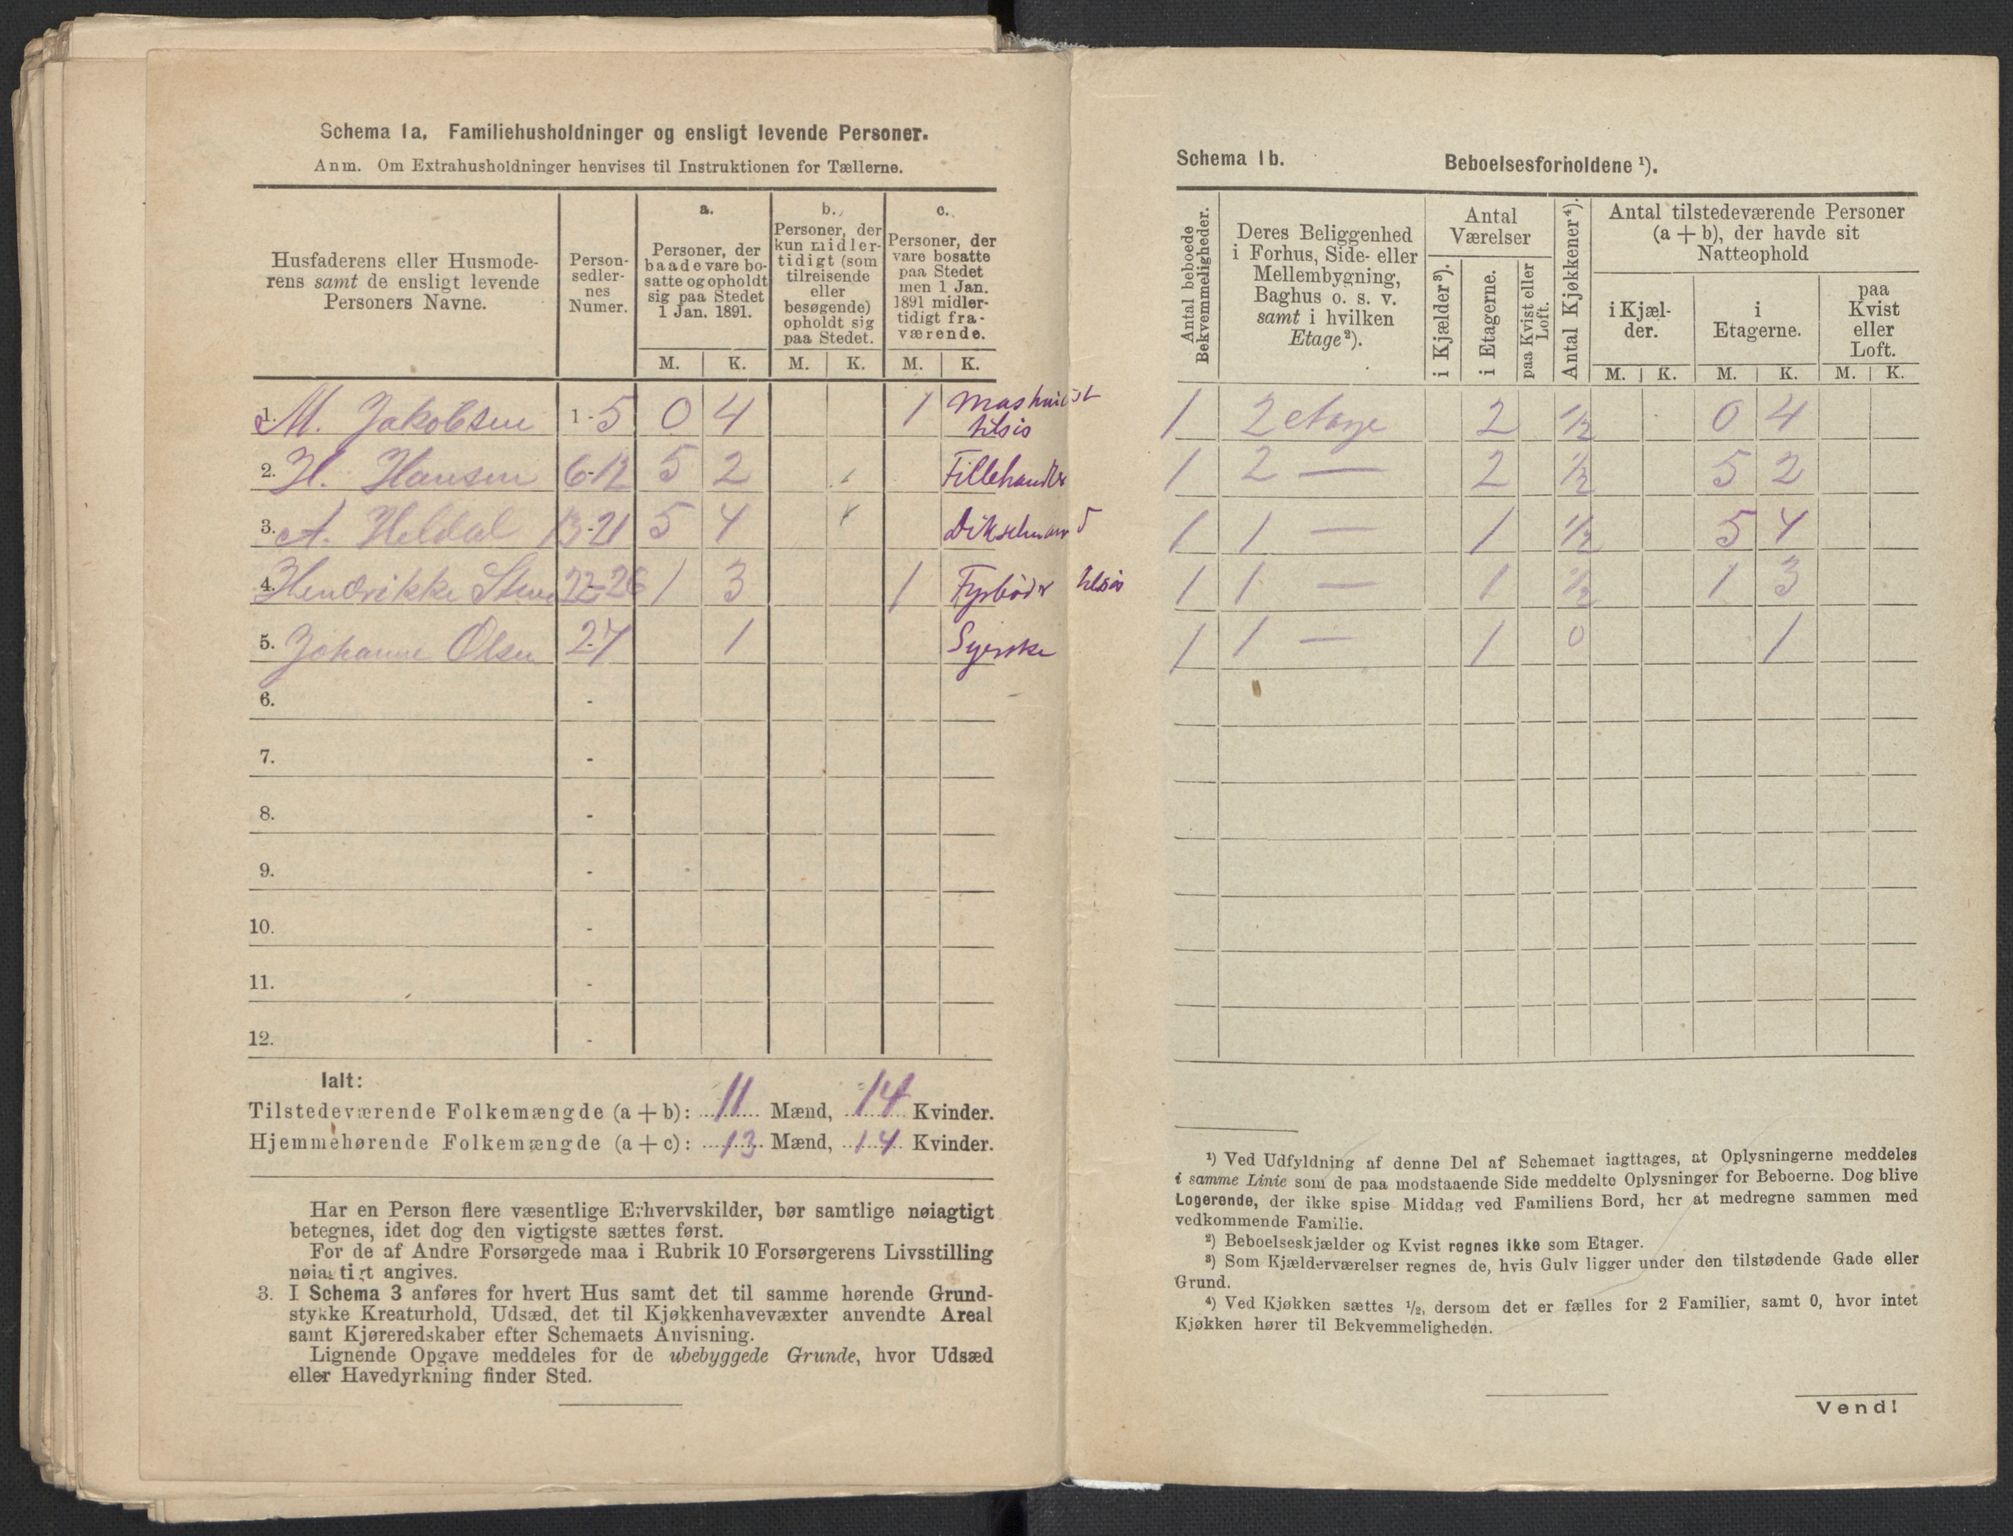 Schema 1a. Familiehusholdninger og ensligt levende Personer.
Anm. Om Extrahusholdninger henvises til Instruktionen for Tællerne.
Husfaderens eller Husmoderens samt de ensligt levende Personers Navne.
Personsedlernes Numer.
a.
Personer, der baade vare bosatte og opholdt sig paa Stedet 1 Jan. 1891.
b.
Personer, der kun midlertidigt (som tilreisende eller besøgende) opholdt sig paa Stedet.
c.
Personer, der vare bosatte paa Stedet men 1 Jan. 1891 midlertidigt fraværende.
M. K. M. K. M. K.
1. M. Jakobsen 1-5 0 4 1 Maskinist tilsøs
2. H. Hansen 6-12 5 2 Fillehandler
3. A. Heldal 13-21 5 4
4. Hendrikke Stene 22-26 1 3 1 Fyrbøder tilsøs
5. Johanne Olsen 27 1 Syerske
6. -
7. -
8. -
9. -
10. -
11. -
12. -
Ialt:
Tilstedeværende Folkemængde (a + b): 11 Mænd, 14 Kvinder.
Hjemmehørende Folkemængde (a + c): 13 Mænd, 14 Kvinder.
Har en Person flere væsentlige Erhvervskilder, bør samtlige nøiagtigt
betegnes, idet dog den vigtigste sættes først.
For de af Andre Forsørgede maa i Rubrik 10 Forsørgerens Livsstilling
nøiagtigt angives.
3. I Schema 3 anføres for hvert Hus samt det til samme hørende Grund-
stykke Kreaturhold, Udsæd, det til Kjøkkenhavevæxter anvendte Areal
samt Kjøreredskaber efter Schemaets Anvisning.
Lignende Opgave meddeles for de ubebyggede Grunde, hvor Udsæd
eller Havedyrkning finder Sted.
Schema 1b. Beboelsesforholdene ¹).
Antal beboede Bekvemmeligheder.
Deres Beliggenhed i Forhus, Side- eller Mellembygning, Baghus o. s. v. samt i hvilken Etage ²).
Antal Værelser
i Kjælder ³).
i Etagerne.
paa Kvist eller Loft.
Antal Kjøkkener ⁴).
Antal tilstedeværende Personer (a + b), der havde sit Natteophold
i Kjælder.
i Etagerne.
paa Kvist eller Loft.
M. K. M. K. M. K.
1 2 etage 2 1/2 0 4
1 2 — 2 1/2 5 2
1 1 — 1 1/2 5 4
1 1 — 1 1/2 1 3
1 1 — 1 0 1
¹) Ved Udfyldning af denne Del af Schemaet iagttages, at Oplysningerne meddeles
i samme Linie som de paa modstaaende Side meddelte Oplysninger for Beboerne. Dog blive
Logerende, der ikke spise Middag ved Familiens Bord, her at medregne sammen med
vedkommende Familie.
²) Beboelseskjælder og Kvist regnes ikke som Etager.
³) Som Kjælderværelser regnes de, hvis Gulv ligger under den tilstødende Gade eller
Grund.
⁴) Ved Kjøkken sættes 1/2, dersom det er fælles for 2 Familier, samt 0, hvor intet
Kjøkken hører til Bekvemmeligheden.
Vend!